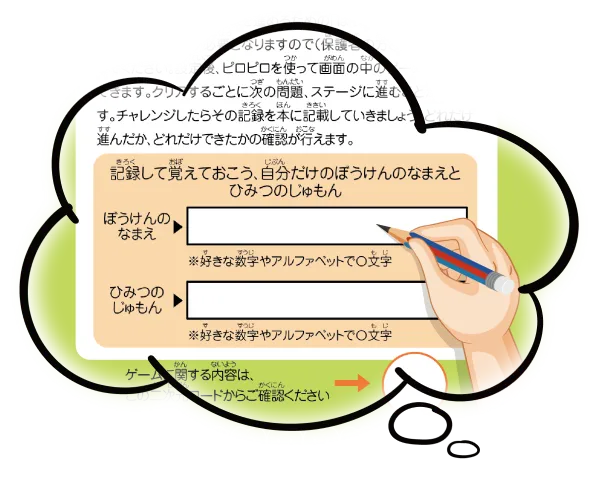 なりますので(保護者
、ピロピロを使って画面の中の
きます。クリアするごとに次の問題、ステージに進む
す。チャレンジしたらその記録を本に記載していきましょう。どれだけ
進んだか、どれだけできたかの確認が行えます。
記録して覚えておこう、自分だけのぼうけんのなまえと
ひみつのじゅもん
ぼうけんの
なまえ
※好きな数字やアルファベットで〇文字
ひみつの
じゅもん
※好きな数字やアルファベットで〇文字
ゲームに関する内容は、
コードからご確認ください